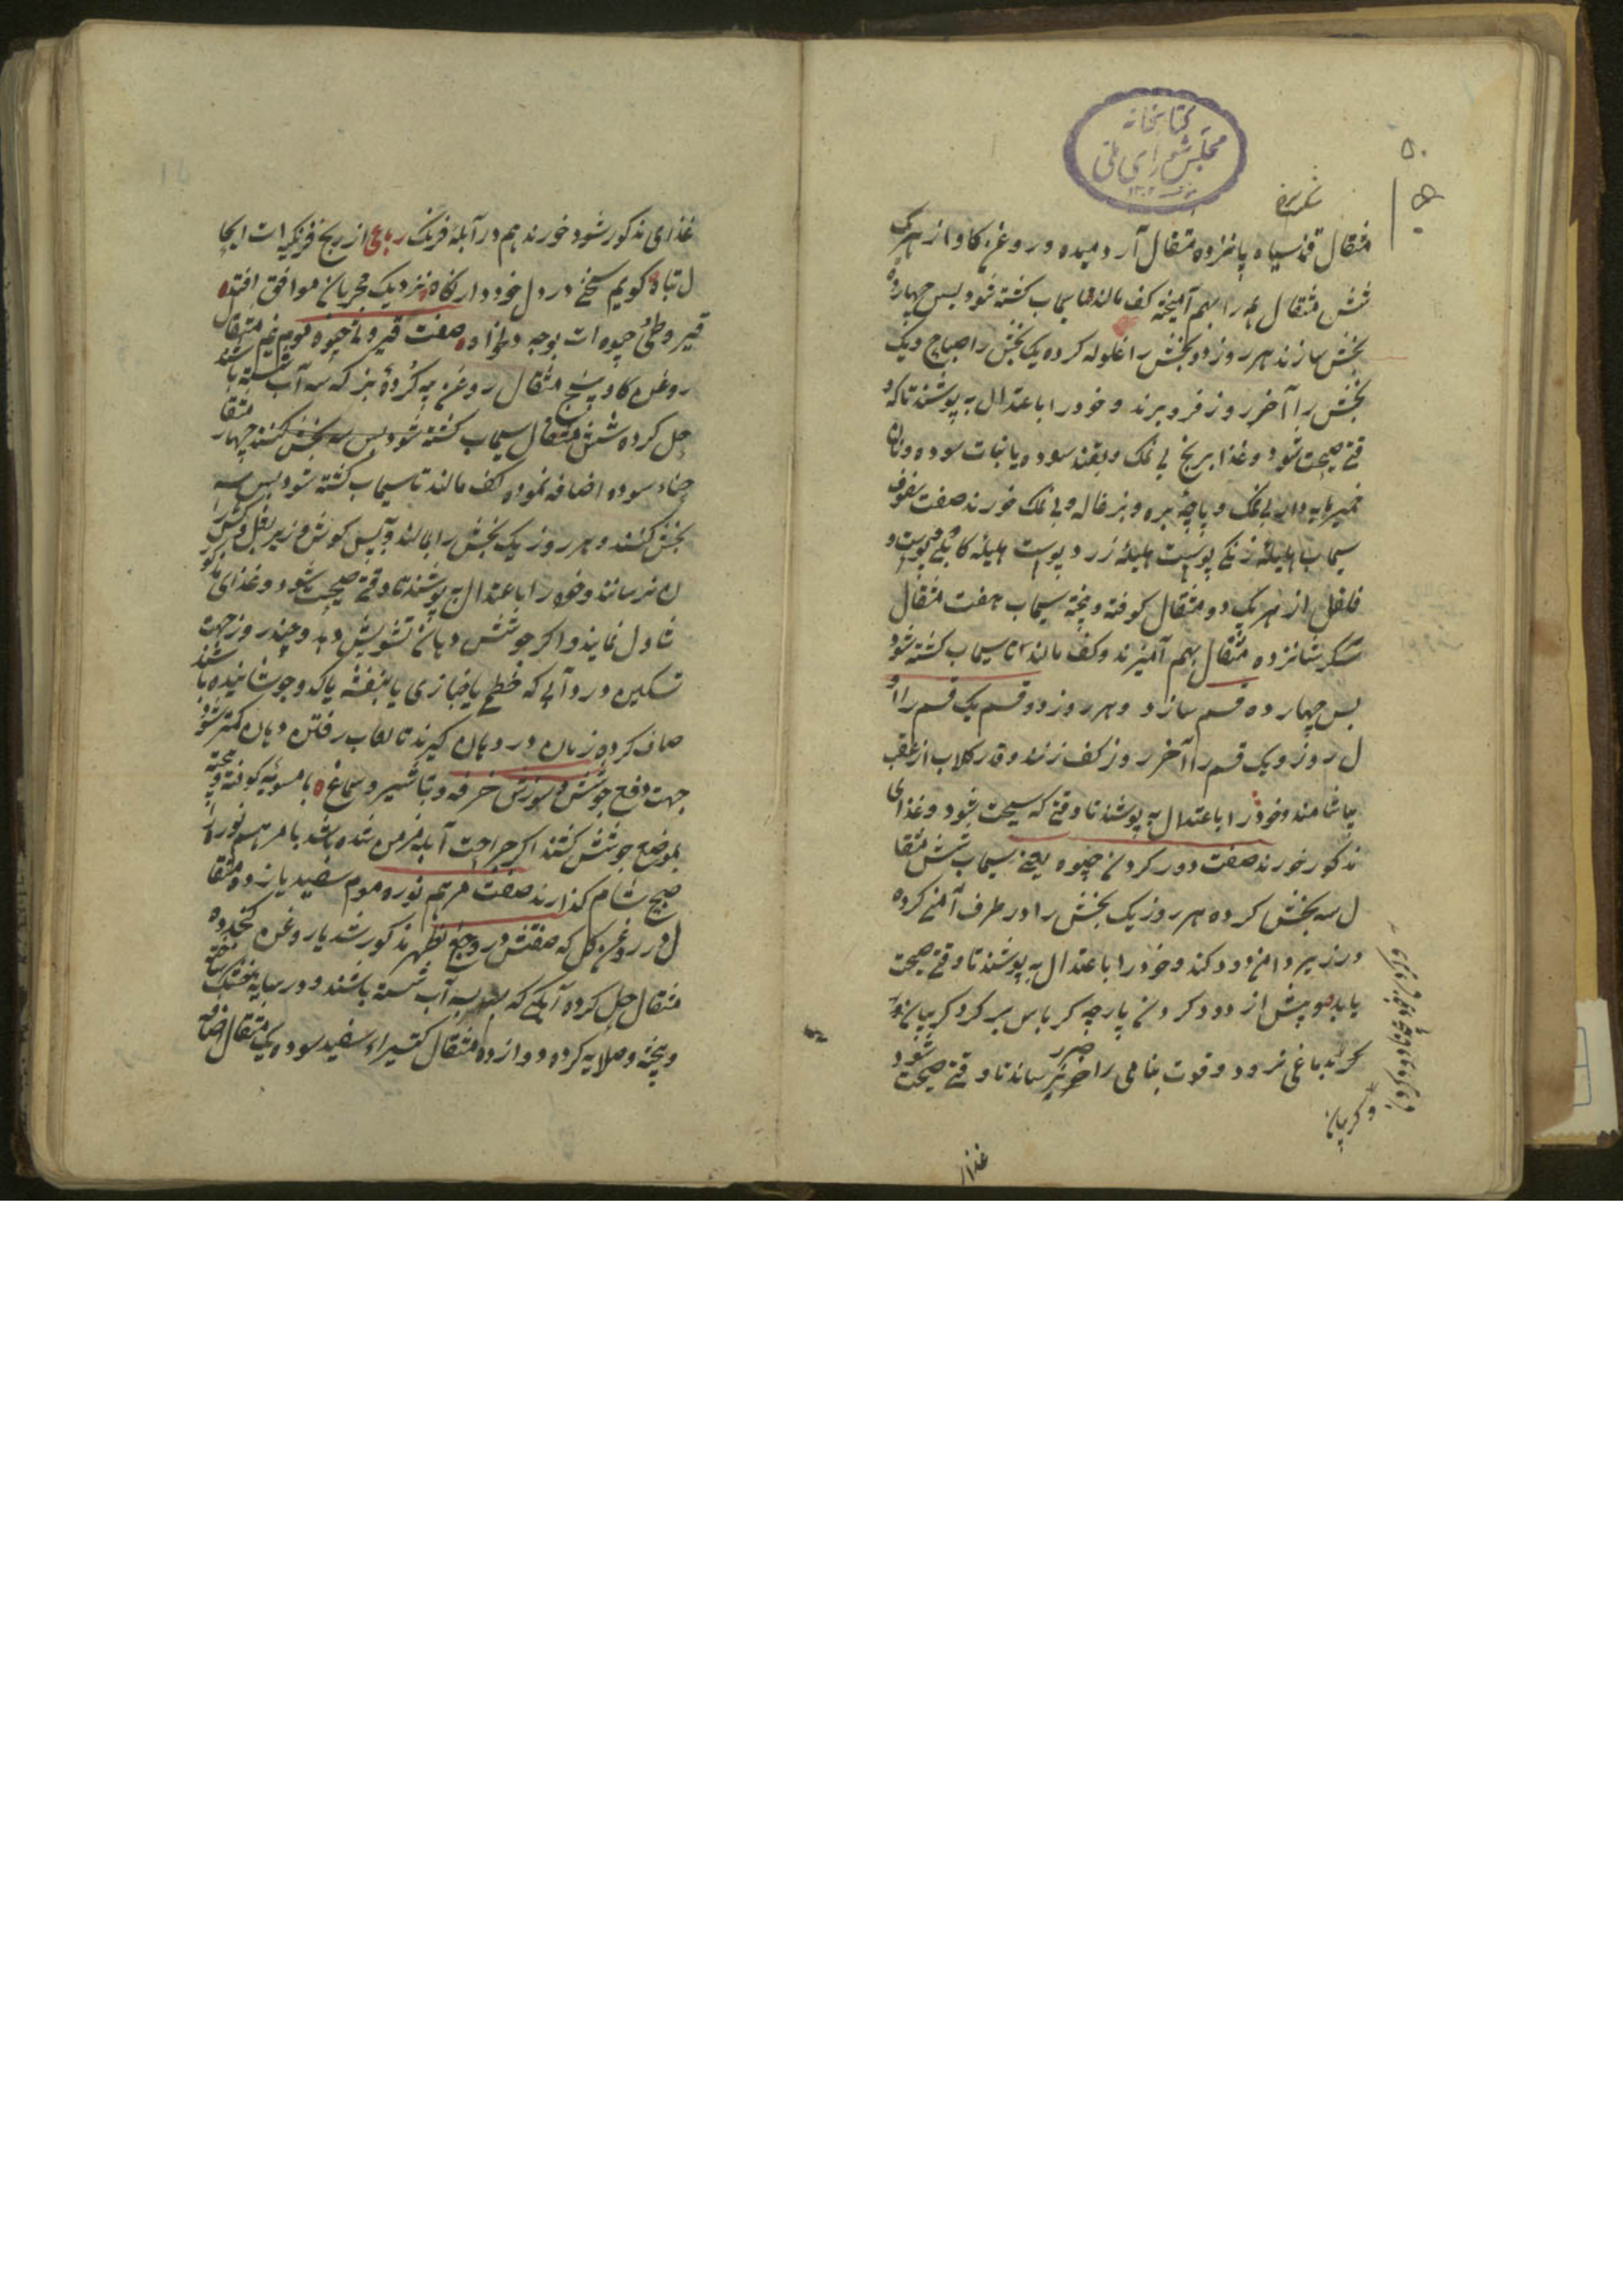 کتابخانه
مجلس شورای ملی
۵۰
مثقال قند سیاه پانزده مثقال آرد میده و روغن کاو از هر یک
شش مثقال همه را بهم آمیخته کف مالند تا سیماب کشته شود پس چهارده
بخش سازند هر روز دو بخش را غلوله کرده یک بخش را صباح و یک
بخش را آخر روز فرو برند و خود را باعتدال به پوشند تا که و
قتی صحت شود و غذا برنج بی نمک و بقند سوده یا نبات سوده و نان
خمیر مایه دار بی نمک و پاچهٔ بره و بزغاله و بی نمک خورند صفت سفوف
سیماب هلیلهٔ زنکی پوست هلیلهٔ زرد پوست هلیله کابلی پوست
فلفل از هر یک دو مثقال کوفته و پخته سیماب هفت مثقال
شکر شانزده مثقال بهم آمیزند و کف مالند تا سیماب کشته شود
پس چهارده قسم سازد و هر روز دو قسم یک قسم را او
ل روز و یک قسم را آخر روز کف زنند و قدر کلاب از عقب
بیاشامند و خود را باعتدال به پوشند تا وقتی که صحت شود و غذای
مذکور خورند صفت دور کردن چیوه یعنی سیماب شش مثقا
ل سه بخش کرده هر روز یک بخش را در ظرف آهنی کرده
در زیر دامن دود کند و خود را باعتدال به پوشند تا وقتی صحت
یابد و پیش از دود کردن پارچه کرباس بر کرد کریبان
که بدماغ نرود و قوت بنامی را ضرر نرساند تا وقتی صحت شود
و کریبان
غذای
غذای مذکور شود خورند هم در آبلهٔ فرنک رباعی از رنج فرنک رات ایجا
ل تباه کویم سخنی در دل خود دار نکاه نزدیک مجربان موافق افتد
قیروطی چیوه ات بوجه دلخواه صفت قیروطی چیوه موم نیم مثقال
روغن کاو پنج مثقال روغن پیه کردهٔ بز که سه آب شسته باشند
حل کرده شش مثقال سیماب کشته شود پس سه بخش کنند چهار مثقا
حناء سوده اضافه نموده کف مالند تا سیماب کشته شود پس سه
بخش کنند و هر روز یک بخش را بمالند و پس کوش و زیر بغل و کش را
ن نرسانند و خود را باعتدال به پوشند تا وقتی صحت شود و غذای مذکور
تناول نمایند و اکر جوشش دهان تشویش دهد و چند روز جهت
تسکین درد آبی که خطمی یا خبازی یا بنفشه پاکد و جوشانیده باشند
صاف کرده زمان در دهان کیرند تا لعاب رفتن دهان کمتر شود
جهت دفع جوشش و سوزش خرفه و تباشیر و سماغ با مسویه کوفته و پخته
بموضع جوشش کنند اکر جراحت آبله مزمن شده باشد با مرهم نوره از
صبح شام کذارند صفت مرهم نوره موم سفید یازده مثقا
ل در روغن کل که صفتش در وجع ظهر مذکور شد یا روغن کنجد ده
مثقال حل کرده آبکی که سه آب شسته باشند و در سایه خشک ساخته
و پخته و صلایه کرده دوازده مثقال کتیراء سفید سوده یک مثقال اضافه